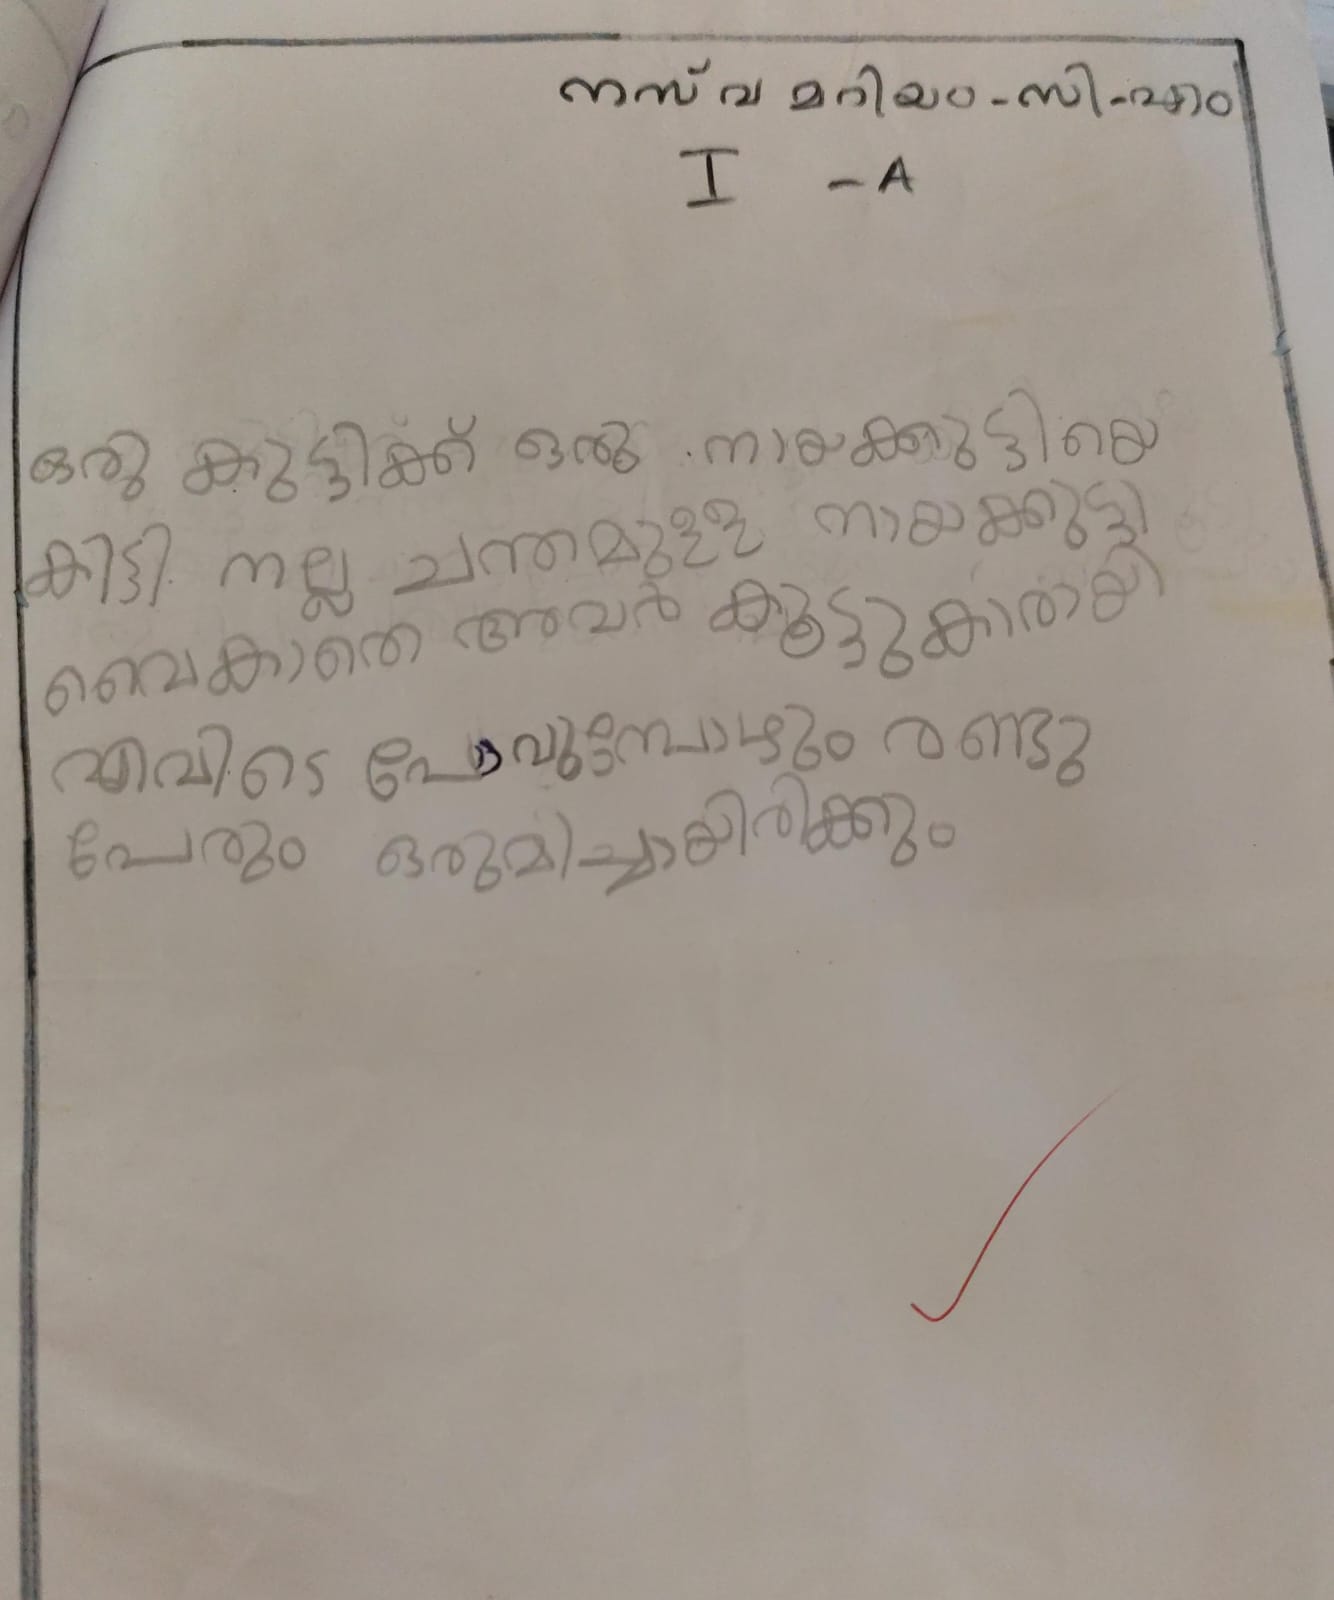 നസ്‌വ മറിയം - സി - എം
I - A
ഒരു കുട്ടിക്ക് ഒരു നായക്കുട്ടിയെ
കിട്ടി. നല്ല ചന്തമുള്ള നായക്കുട്ടി
വൈകാതെ അവർ കൂട്ടുകാരായി
എവിടെ പോവുമ്പോഴും രണ്ടു
പേരും ഒരുമിച്ചായിരിക്കും